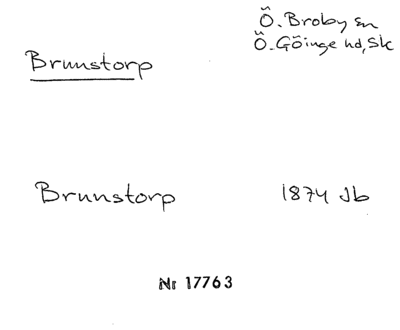 Ö. Broby sn
Ö. Göinge hd, Sk
Brunstorp
Brunnstorp
1874 Jb
Nr 17763